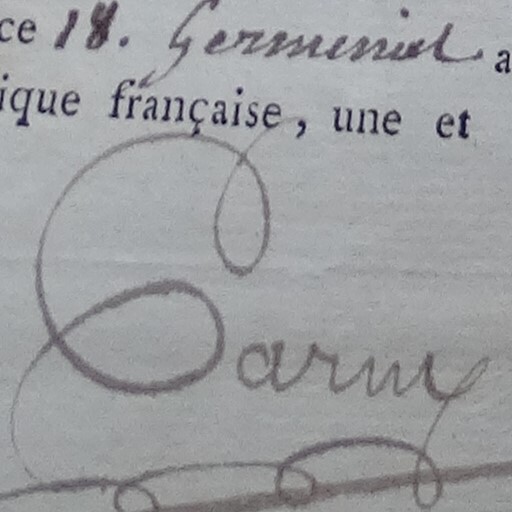 ce 18. Germinial a
ique française, une et
Carny